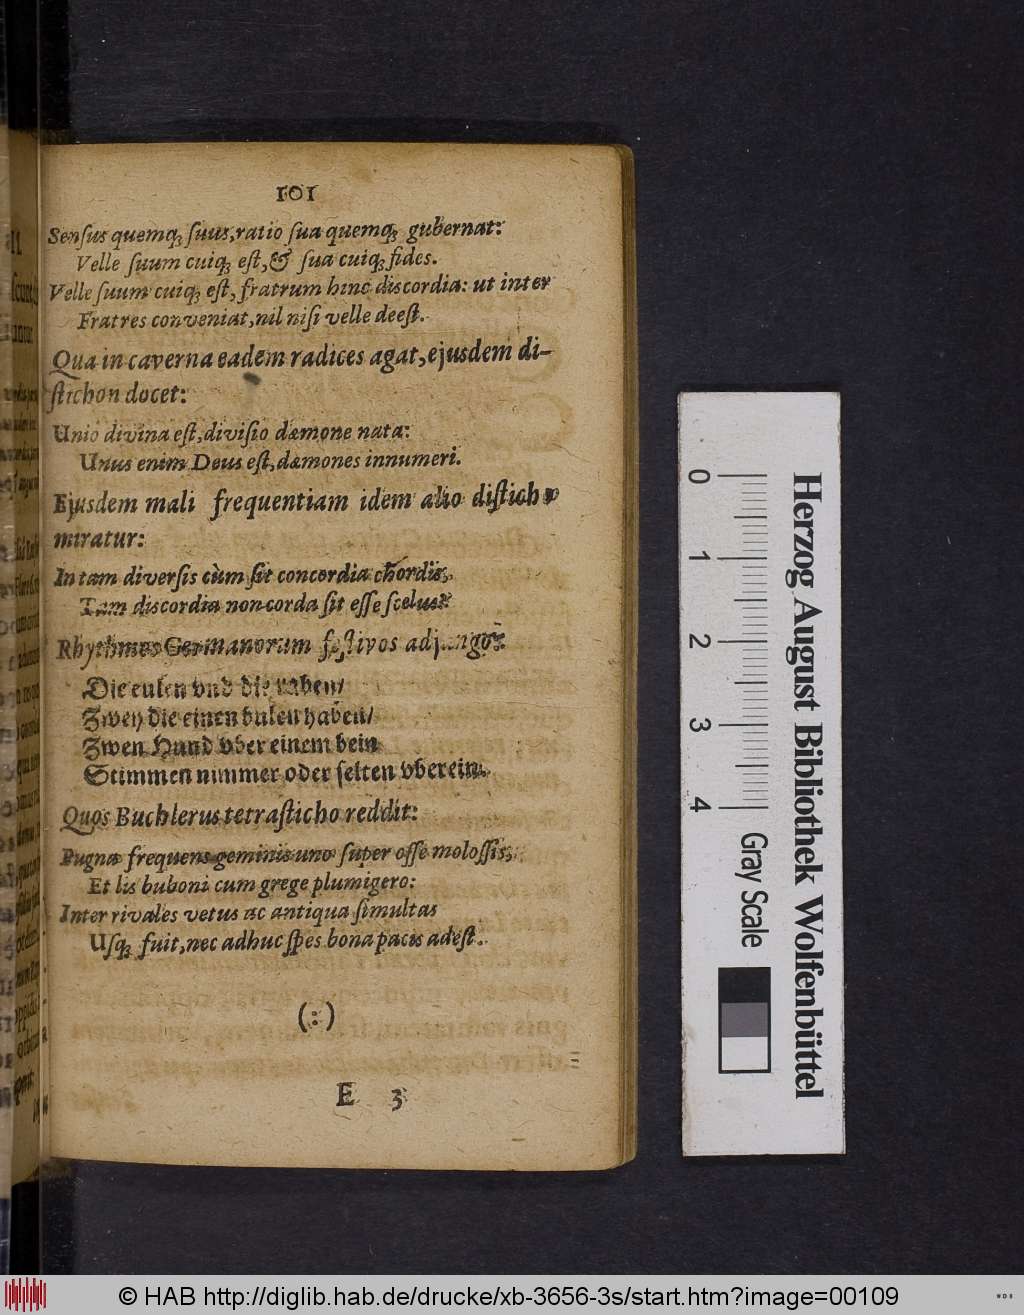 101
Senſus quemq; ſuus, ratio ſua quemq; gubernat:
Velle ſuum cuiq; eſt, & ſua cuiq; fides.
Velle ſuum cuiq; eſt, fratrum hinc discordia: ut inter
Fratres conveniat, nil niſi velle deeſt.
Qua in caverna eadem radices agat, ejusdem di-
ſtichon docet:
Unio divina eſt, diviſio dæmone nata:
Unus enim Deus eſt, dæmones innumeri.
Ejusdem mali frequentiam idem alio diſticho
miratur:
In tam diverſis cùm ſit concordia chordis,
Tam discordia non corda ſit eſſe ſcelus?
Rhythmos Germanorum feſtivos adjungo:
Die eulen vnd die raben/
Zwey die einen bulen haben/
Zwen Hund vber einem bein
Stimmen nimmer oder ſelten vberein.
Quos Buchlerus tetraſticho reddit:
Pugna frequens geminis uno ſuper oſſe moloſſis,
Et lis buboni cum grege plumigero:
Inter rivales vetus ac antiqua ſimultas
Uſq; fuit, nec adhuc ſpes bona pacis adeſt.
(:)
E 3
0
1
2
3
4
Gray Scale
Herzog August Bibliothek Wolfenbüttel
© HAB http://diglib.hab.de/drucke/xb-3656-3s/start.htm?image=00109